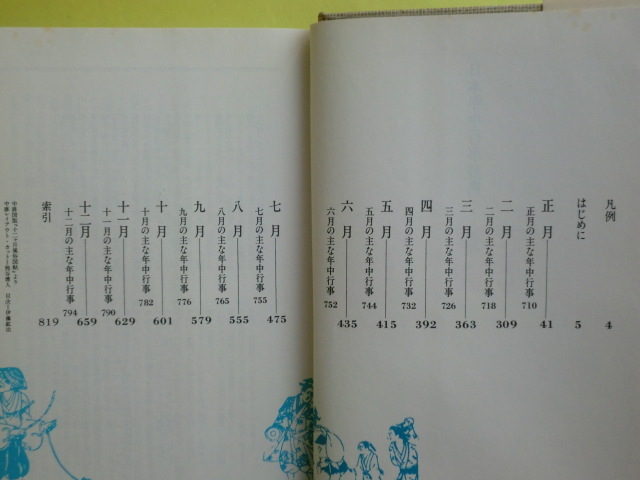 凡例 4
はじめに 5
正月 41
正月の主な年中行事 710
二月 309
二月の主な年中行事 718
三月 363
三月の主な年中行事 726
四月 392
四月の主な年中行事 732
五月 415
五月の主な年中行事 744
六月 435
六月の主な年中行事 752
七月 475
七月の主な年中行事 755
八月 555
八月の主な年中行事 765
九月 579
九月の主な年中行事 776
十月 601
十月の主な年中行事 782
十一月 629
十一月の主な年中行事 790
十二月 659
十二月の主な年中行事 794
索引 819